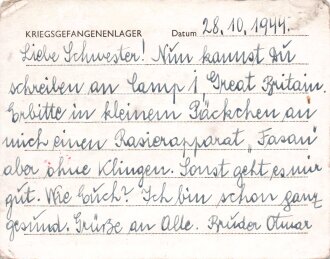 KRIEGSGEFANGENENLAGER Datum 28.10.1944.
Liebe Schwester! Nun kannst Du
schreiben an Camp 1, Great Britain.
Erbitte in kleinem Päckchen an
mich einen Rasierapparat „Fasan"
aber ohne Klingen. Sonst geht es mir
gut. Wie Euch? Ich bin schon ganz
gesund. Grüße an Alle. Bruder Otmar